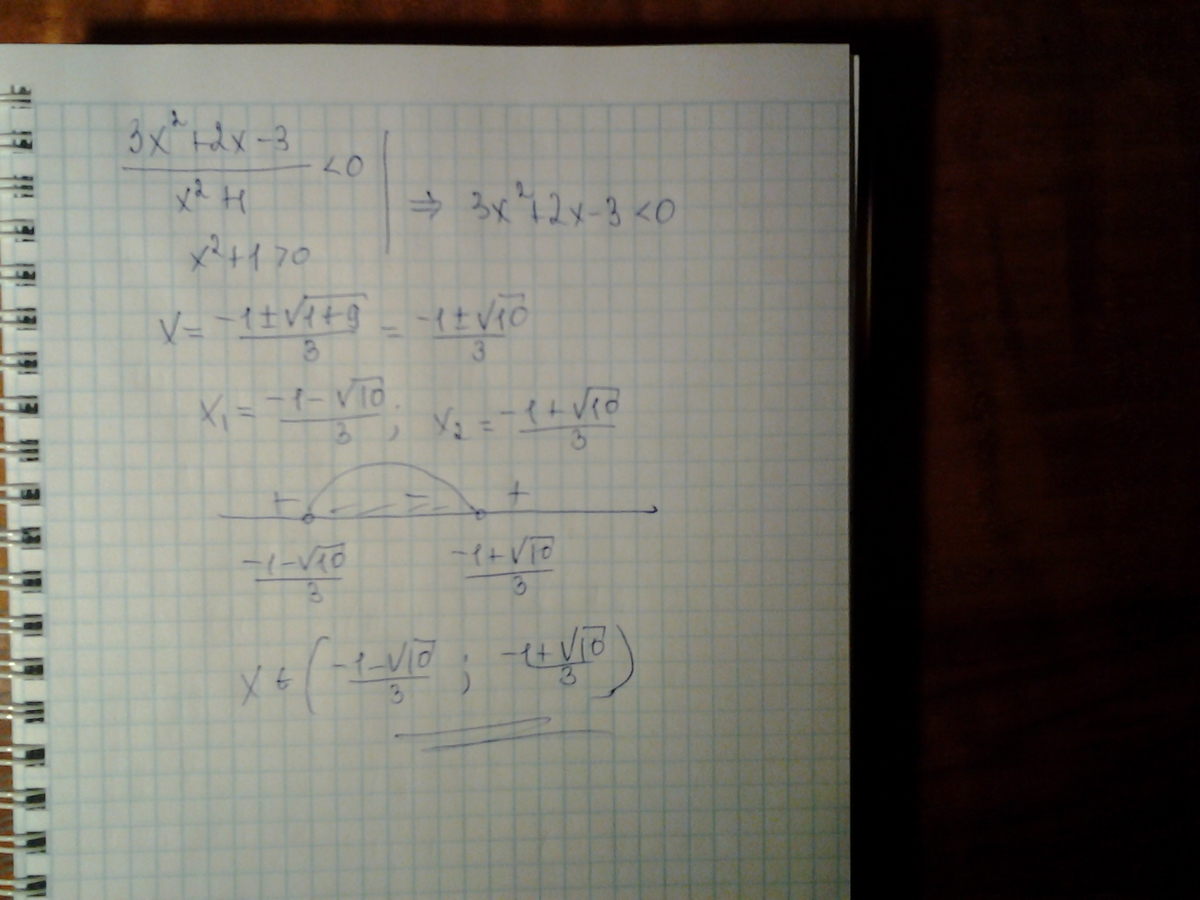 (3x² + 2x - 3) / (x² + 1) < 0
x² + 1 > 0
⇒ 3x² + 2x - 3 < 0
x = (-1 ± √(1+9)) / 3 = (-1 ± √10) / 3
x₁ = (-1 - √10) / 3 ; x₂ = (-1 + √10) / 3
+ - +
(-1 - √10) / 3 (-1 + √10) / 3
x ∈ ( (-1 - √10) / 3 ; (-1 + √10) / 3 )